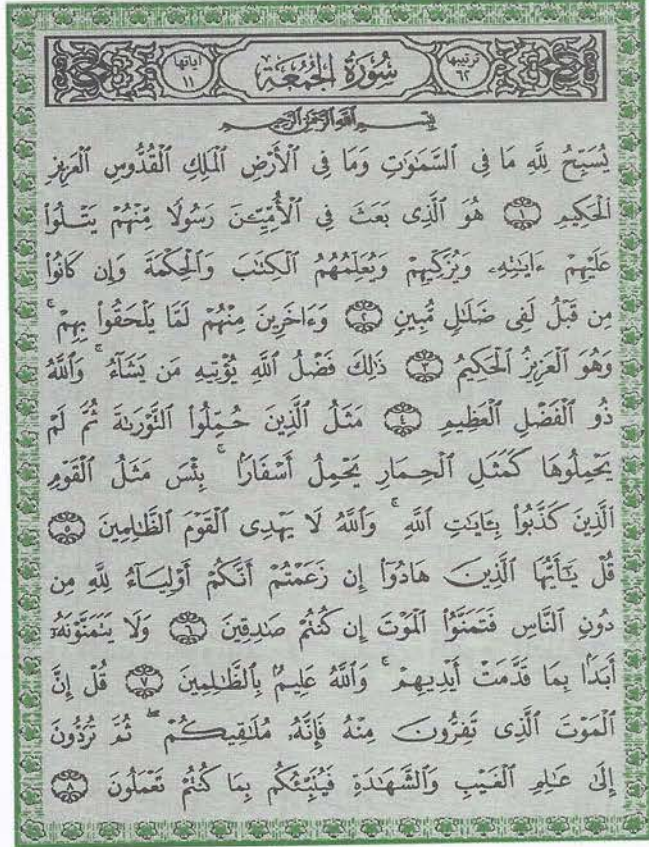 ترتيبها ٦٢ سُورَةُ الجُمُعَةِ اياتها ١١
بِسْمِ اللَّهِ الرَّحْمَٰنِ الرَّحِيمِ
يُسَبِّحُ لِلَّهِ مَا فِى السَّمَٰوَٰتِ وَمَا فِى الْأَرْضِ الْمَلِكِ الْقُدُّوسِ الْعَزِيزِ
الْحَكِيمِ ١ هُوَ الَّذِى بَعَثَ فِى الْأُمِّيِّـۧنَ رَسُولًا مِّنْهُمْ يَتْلُوا۟
عَلَيْهِمْ ءَايَٰتِهِۦ وَيُزَكِّيهِمْ وَيُعَلِّمُهُمُ الْكِتَٰبَ وَالْحِكْمَةَ وَإِن كَانُوا۟
مِن قَبْلُ لَفِى ضَلَٰلٍ مُّبِينٍ ٢ وَءَاخَرِينَ مِنْهُمْ لَمَّا يَلْحَقُوا۟ بِهِمْ ۚ
وَهُوَ الْعَزِيزُ الْحَكِيمُ ٣ ذَٰلِكَ فَضْلُ اللَّهِ يُؤْتِيهِ مَن يَشَآءُ ۚ وَاللَّهُ
ذُو الْفَضْلِ الْعَظِيمِ ٤ مَثَلُ الَّذِينَ حُمِّلُوا۟ التَّوْرَىٰةَ ثُمَّ لَمْ
يَحْمِلُوهَا كَمَثَلِ الْحِمَارِ يَحْمِلُ أَسْفَارًۢا ۚ بِئْسَ مَثَلُ الْقَوْمِ
الَّذِينَ كَذَّبُوا۟ بِـَٔايَٰتِ اللَّهِ ۚ وَاللَّهُ لَا يَهْدِى الْقَوْمَ الظَّٰلِمِينَ ٥
قُلْ يَٰٓأَيُّهَا الَّذِينَ هَادُوٓا۟ إِن زَعَمْتُمْ أَنَّكُمْ أَوْلِيَآءُ لِلَّهِ مِن
دُونِ النَّاسِ فَتَمَنَّوُا۟ الْمَوْتَ إِن كُنتُمْ صَٰدِقِينَ ٦ وَلَا يَتَمَنَّوْنَهُۥٓ
أَبَدًۢا بِمَا قَدَّمَتْ أَيْدِيهِمْ ۚ وَاللَّهُ عَلِيمٌۢ بِالظَّٰلِمِينَ ٧ قُلْ إِنَّ
الْمَوْتَ الَّذِى تَفِرُّونَ مِنْهُ فَإِنَّهُۥ مُلَٰقِيكُمْ ۖ ثُمَّ تُرَدُّونَ
إِلَىٰ عَٰلِمِ الْغَيْبِ وَالشَّهَٰدَةِ فَيُنَبِّئُكُم بِمَا كُنتُمْ تَعْمَلُونَ ٨